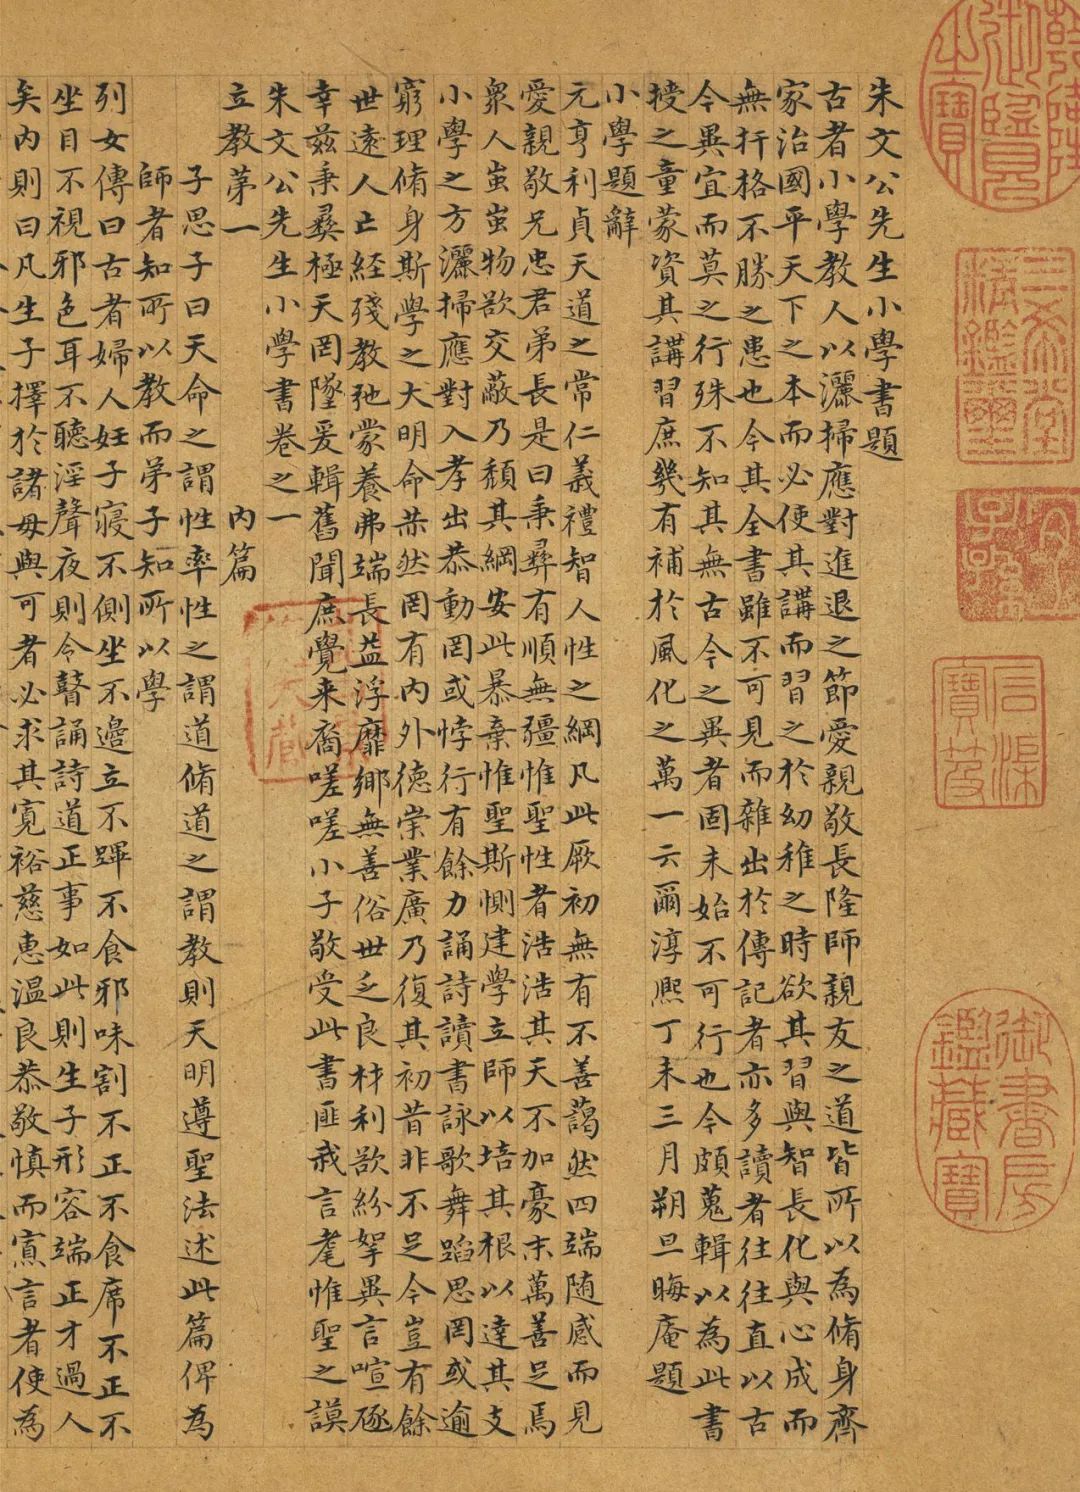 乾隆御覽之寶
三希堂精鑑璽
宜子孫
石渠寶笈
御書房鑑藏寶
朱文公先生小學書題
古者小學教人以灑掃應對進退之節愛親敬長隆師親友之道皆所以為脩身齊
家治國平天下之本而必使其講而習之於幼稚之時欲其習與智長化與心成而
無扞格不勝之患也今其全書雖不可見而雜出於傳記者亦多讀者往往直以古
今異宜而莫之行殊不知其無古今之異者固未始不可行也今頗蒐輯以為此書
授之童蒙資其講習庶幾有補於風化之萬一云爾淳熙丁未三月朔旦晦庵題
小學題辭
元亨利貞天道之常仁義禮智人性之綱凡此厥初無有不善藹然四端随感而見
愛親敬兄忠君弟長是曰秉彝有順無疆惟聖性者浩浩其天不加豪末萬善足焉
衆人蚩蚩物欲交蔽乃頹其綱安此暴棄惟聖斯惻建學立師以培其根以達其支
小學之方灑掃應對入孝出恭動罔或悖行有餘力誦詩讀書詠歌舞蹈思罔或逾
窮理脩身斯學之大明命赫然罔有內外德崇業廣乃復其初昔非不足今豈有餘
世遠人亡経殘教弛蒙養弗端長益浮靡鄉無善俗世乏良材利欲紛挐異言喧豗
幸茲秉彝極天罔墜爰輯舊聞庶覺来裔嗟嗟小子敬受此書匪我言耄惟聖之謨
朱文公先生小學書卷之一
立教苐一 內篇
子思子曰天命之謂性率性之謂道脩道之謂教則天明遵聖法述此篇俾為
師者知所以教而弟子知所以學
列女傳曰古者婦人妊子寢不側坐不邊立不蹕不食邪味割不正不食席不正不
坐目不視邪色耳不聽淫聲夜則令瞽誦詩道正事如此則生子形容端正才過人
矣內則曰凡生子擇於諸母與可者必求其寬裕慈惠溫良恭敬慎而寡言者使為